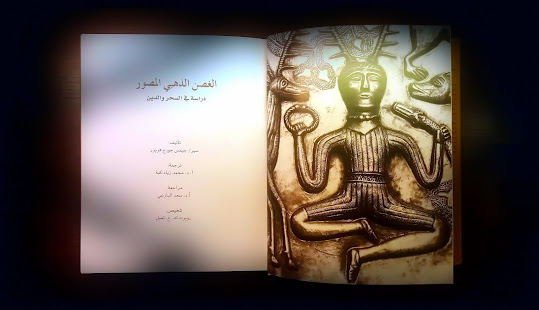 الغصن الذهبي المصور
دراسة في السحر والدين
تأليف:
سير/ جيمس جورج فريزر
ترجمة
أ. د. محمد زياد كبة
مراجعة
أ. د. سعد البازعي
تلخيص:
روبرت ك. ج. تمبل